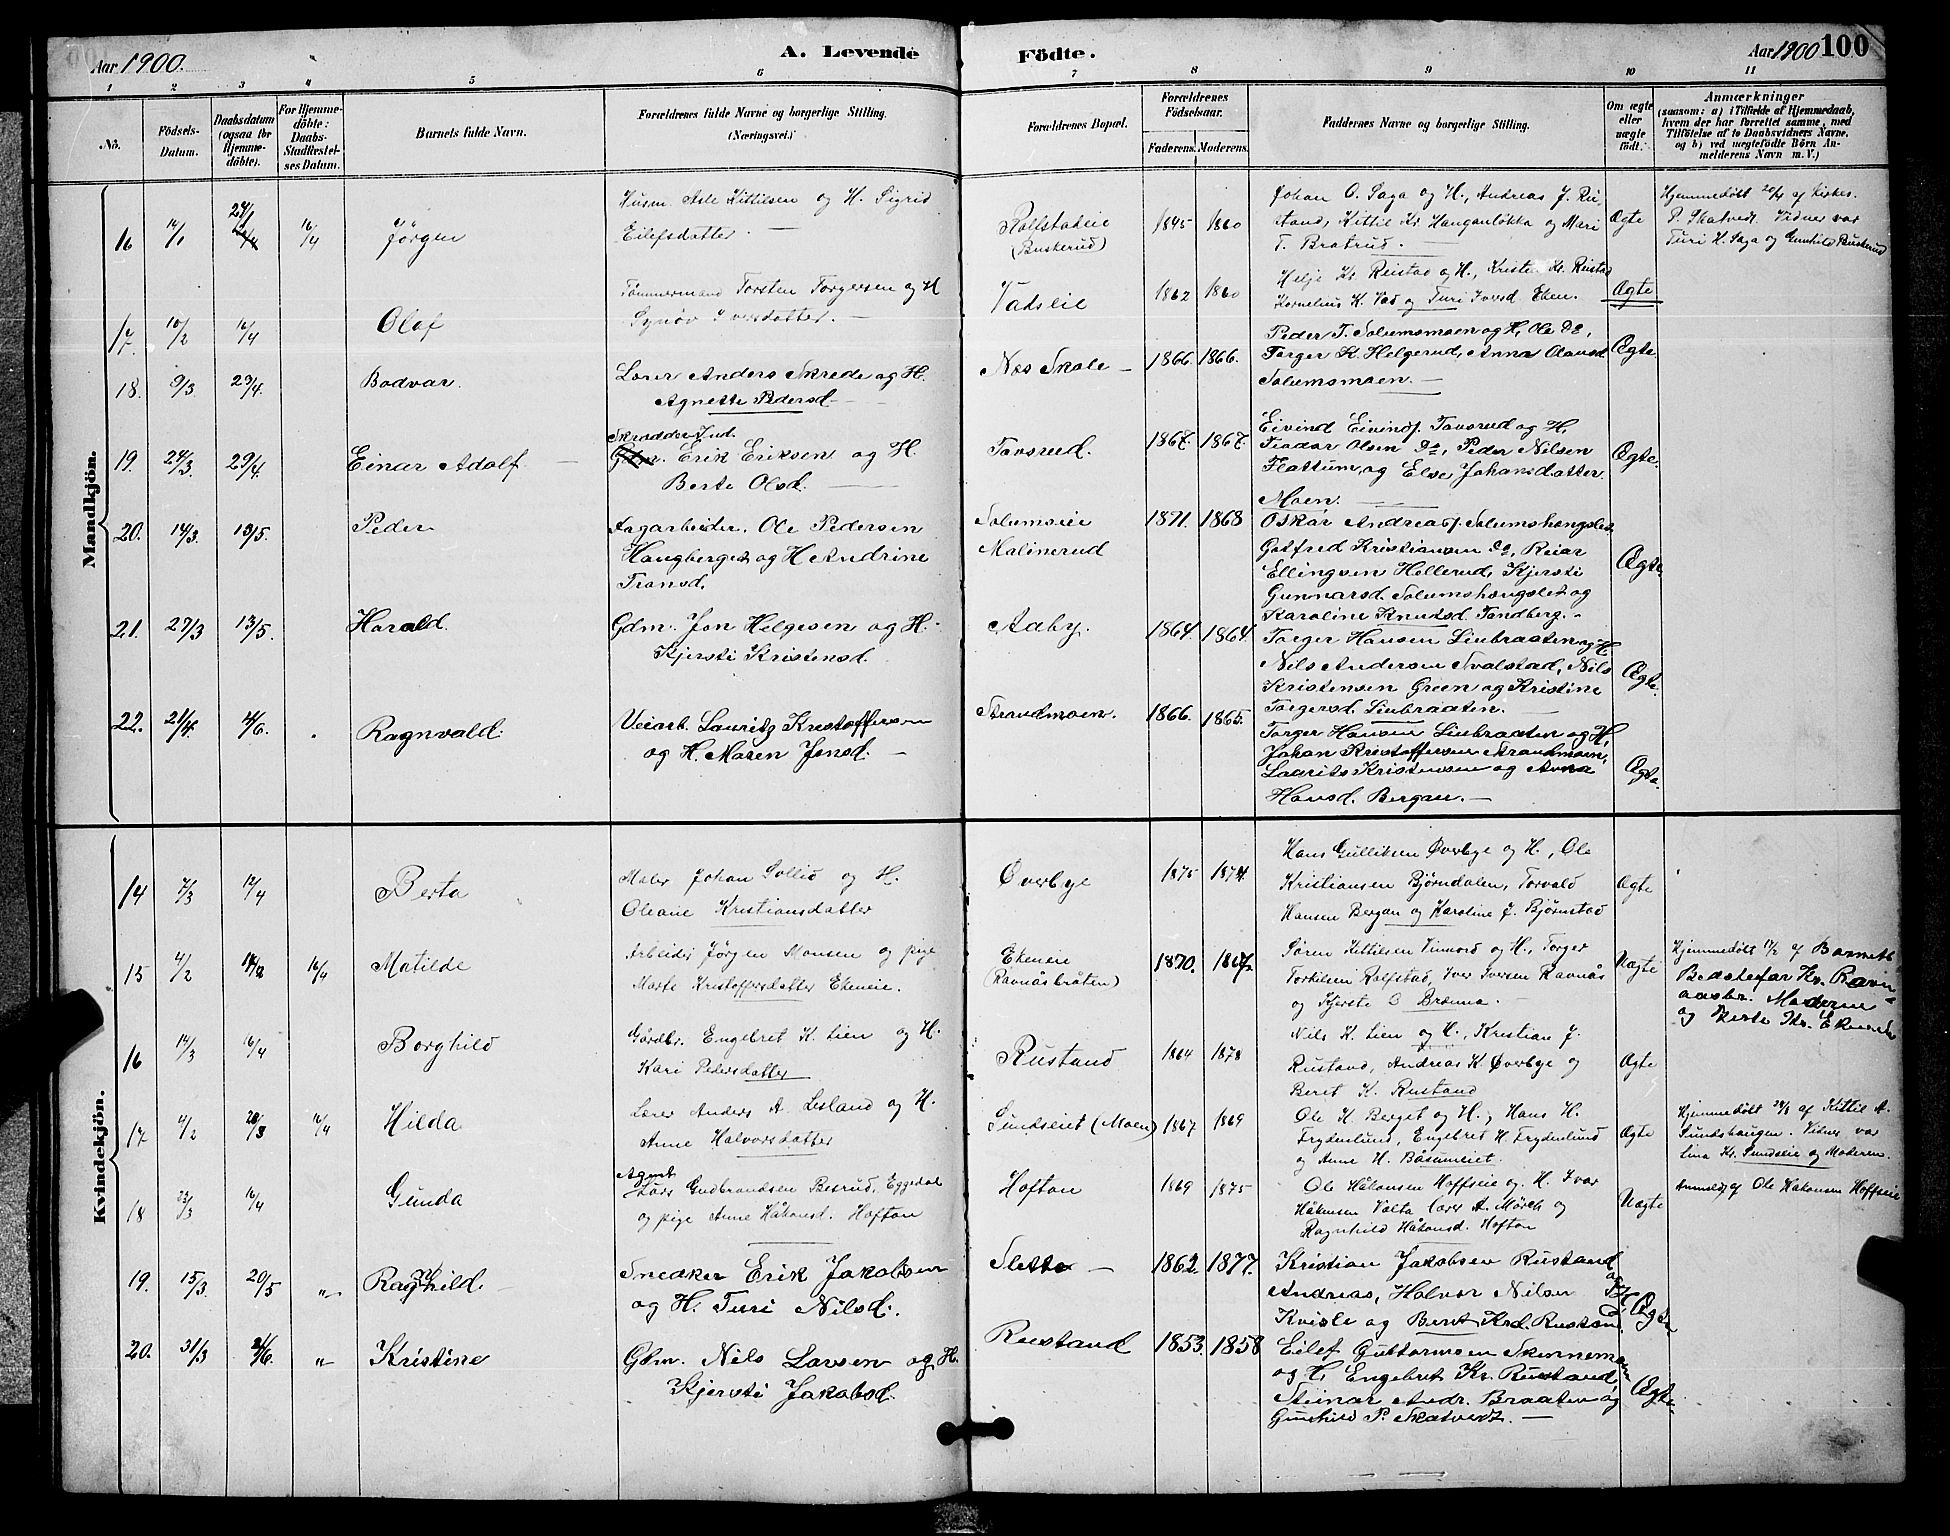 Aar 1900. A. Levende Födte. Aar 1900 100
1 2 3 4 5 6 7 8 9 10 11
Nö.
Födsels-Datum.
Daabsdatum (ogsaa for Hjemmedöbte).
For Hjemmedöbte: Daabs-Stadfestelses Datum.
Barnets fulde Navn.
Forældrenes fulde Navne og borgerlige Stilling. (Næringsvei.)
Forældrenes Bopæl.
Forældrenes Födselsaar.
Faderens. Moderens.
Faddernes Navne og borgerlige Stilling.
Om ægte eller uægte födt.
Anmærkninger
(saasom: a) i Tilfælde af Hjemmedaab,
hvem der har forrettet samme, med
Tilföielse af to Daabsvidners Navne,
og b) ved uægtefödte Börn An-
melderens Navn m. V.)
Mandkjön.
16 14/1 16/4 Jørgen
Husm. Asle Kittilsen og H. Sigrid
Eilefsdatter
Rolfstadeie
(Buskerud)
1845 1860
Johan O. Saga og H., Andreas J. Ru-
stand, Kittil Kr. Hanganløkka og Mari
T. Bratrud.
Ægte
Hjemmedøbt af Kirkes.
P. Skatvedt. Vidner var
Turi H. Saga og Gunhild Buskerud
17. 10/2 16/4 Olaf
Tømmermand Torsten Torgersen og H
Synøv Iversdatter.
Vadseie
1862 1860
Helje Kr. Reistad og H., Kristi Kr. Reistad
Kornelius K. Vad og Turi Iversd Eken.
Ægte
18. 9/3 29/4 Bodvar.
Lærer Anders Skrede og H.
Agnette Pedersd.
Næs Skole
1866. 1866.
Peder T. Solumsmoen og H, Ole do,
Torger K. Helgerud, Anna Olausd
Solumsmoen.
Ægte.
19. 24/3 29/4 Einar Adolf
Skrædder Ind.
Gdm. Erik Eriksen og H.
Berte Olsd.
Tovsrud.
1867. 1867.
Eivind Eivinds. Tovsrud og H,
Teodor Olsen do, Peder Nilsen
Flattum, og Else Johansdatter
Moen.
Ægte.
20. 14/3 13/5. Peder
Fagarbeider. Ole Pedersen
Haugberget og H Andrine
Transd.
Solumseie
Malinerud
1871. 1868
Oskar Andreas. Solumshængslet
Gotfred Kristiansen do, Reiar
Ellingsen Hellerud, Kjersti
Gunnarsd Solumshængslet og
Karoline Knutsd. Tandberg.
Ægte
21. 27/3 13/5. Harald.
Gdm. Jon Helgesen og H.
Kjersti Kristensd.
Aaby.
1864. 1864.
Torger Hansen Linbraaten og H.
Nils Andersen Svalstad, Nils
Kristensen Green og Kristine
Torgersd. Linbraaten.
Ægte.
22. 21/4 4/6. Ragnvald.
Veiarb. Lauritz Kristoffersen
og H. Maren Jonsd.
Strandmoen.
1866. 1865.
Torger Hansen Linbraaten og H,
Johan Kristoffersen Strandmoen,
Laurits Kristensen og Anna
Hansd. Bergan.
Ægte.
Kvindekjön.
14 7/3 12/4 Berta
Maler Johan Sollid og H.
Oleane Kristiansdatter
Øverbye
1875 1874
Hans Gulliksen Øverbye og H., Ole
Kristiansen Bjørndalen, Torvald
Hansen Bergan og Karoline J. Bjørnstad
Ægte
15 4/2 16/4 Matilde
Arbeider Jørgen Monsen og pige
Marte Kristoffersdatter Ekeneie.
Ekeneie
(Ravnåsbråten)
1870. 1867
Søren Kittilsen Vinnord og H., Torger
Torkilsen Rolfstad, Iver Iversen Ravnås
og Kjerste O Brænna.
Uægte
Hjemmedøbt af Barnets
Bedstefar Kr. Ravn-
aasbr. Moderen
og Berte Kr. Ekeneie
16 14/3 16/4 Borghild
Gårdbr. Engebret K. Lien og H.
Kari Pedersdatter
Rustand
1864 1878
Nils K. Lien og H., Kristian J.
Rustand, Andreas K. Øverbye og
Beret K. Rustand
Ægte
17. 4/2 16/4 Hilda
Lærer Anders A. Lesland og H.
Anne Halvorsdatter
Sundseiet (Moen)
1867 1869
Ole H. Berget og H., Hans H.
Frydenlund, Engebret H. Frydenlund
og Anne H. Båsumeiet.
Ægte
Hjemmedøbt af Kittil A.
Sundshaugen. Vidner var
Lina Kr. Sundseie og Moderen.
18 23/3 16/4 Gunda
Agent
Lars Gudbrandsen Besrud, Eggedal
og pige Anne Håkonsd. Hofton
Hofton
1869 1875
Ole Håkonsen Hoffseie og H. Ivar
Håkensen Volta lærer A. Mørch og
Ragnhild Håkonsd. Hofton
Uægte
Anmeldt af Ole Håkonsen Hoffseie
19. 15/3 20/5 „ Ragnhild.
Snedker Erik Jakobsen
og H. Turi Nilsd.
Slette
1862. 1877.
Kristian Jakobsen Rustand
Andreas, Halvor Nilsen
Kvisle og Berit Krd. Rustand
Ægte
20. 31/3 4/6. „ Kristine
Gdm. Nils Larsen og H.
Kjersti Jakobsd.
Rustand
1853. 1858
Eilef Guttormsen Skinnemoen
og H, Engebret Kr. Rustand
Steinar Andr. Braaten og
Gunhild P. Skatvedt.
Ægte.